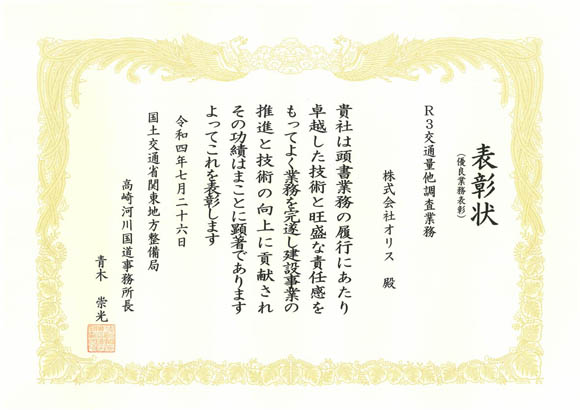 表彰状
（優良業務表彰）
R3交通量他調査業務
株式会社オリス 殿
貴社は頭書業務の履行にあたり
卓越した技術と旺盛な責任感を
もってよく業務を完遂し建設事業の
推進と技術の向上に貢献され
その功績はまことに顕著であります
よってこれを表彰します
令和四年七月二十六日
国土交通省関東地方整備局
高崎河川国道事務所長
青木 崇光